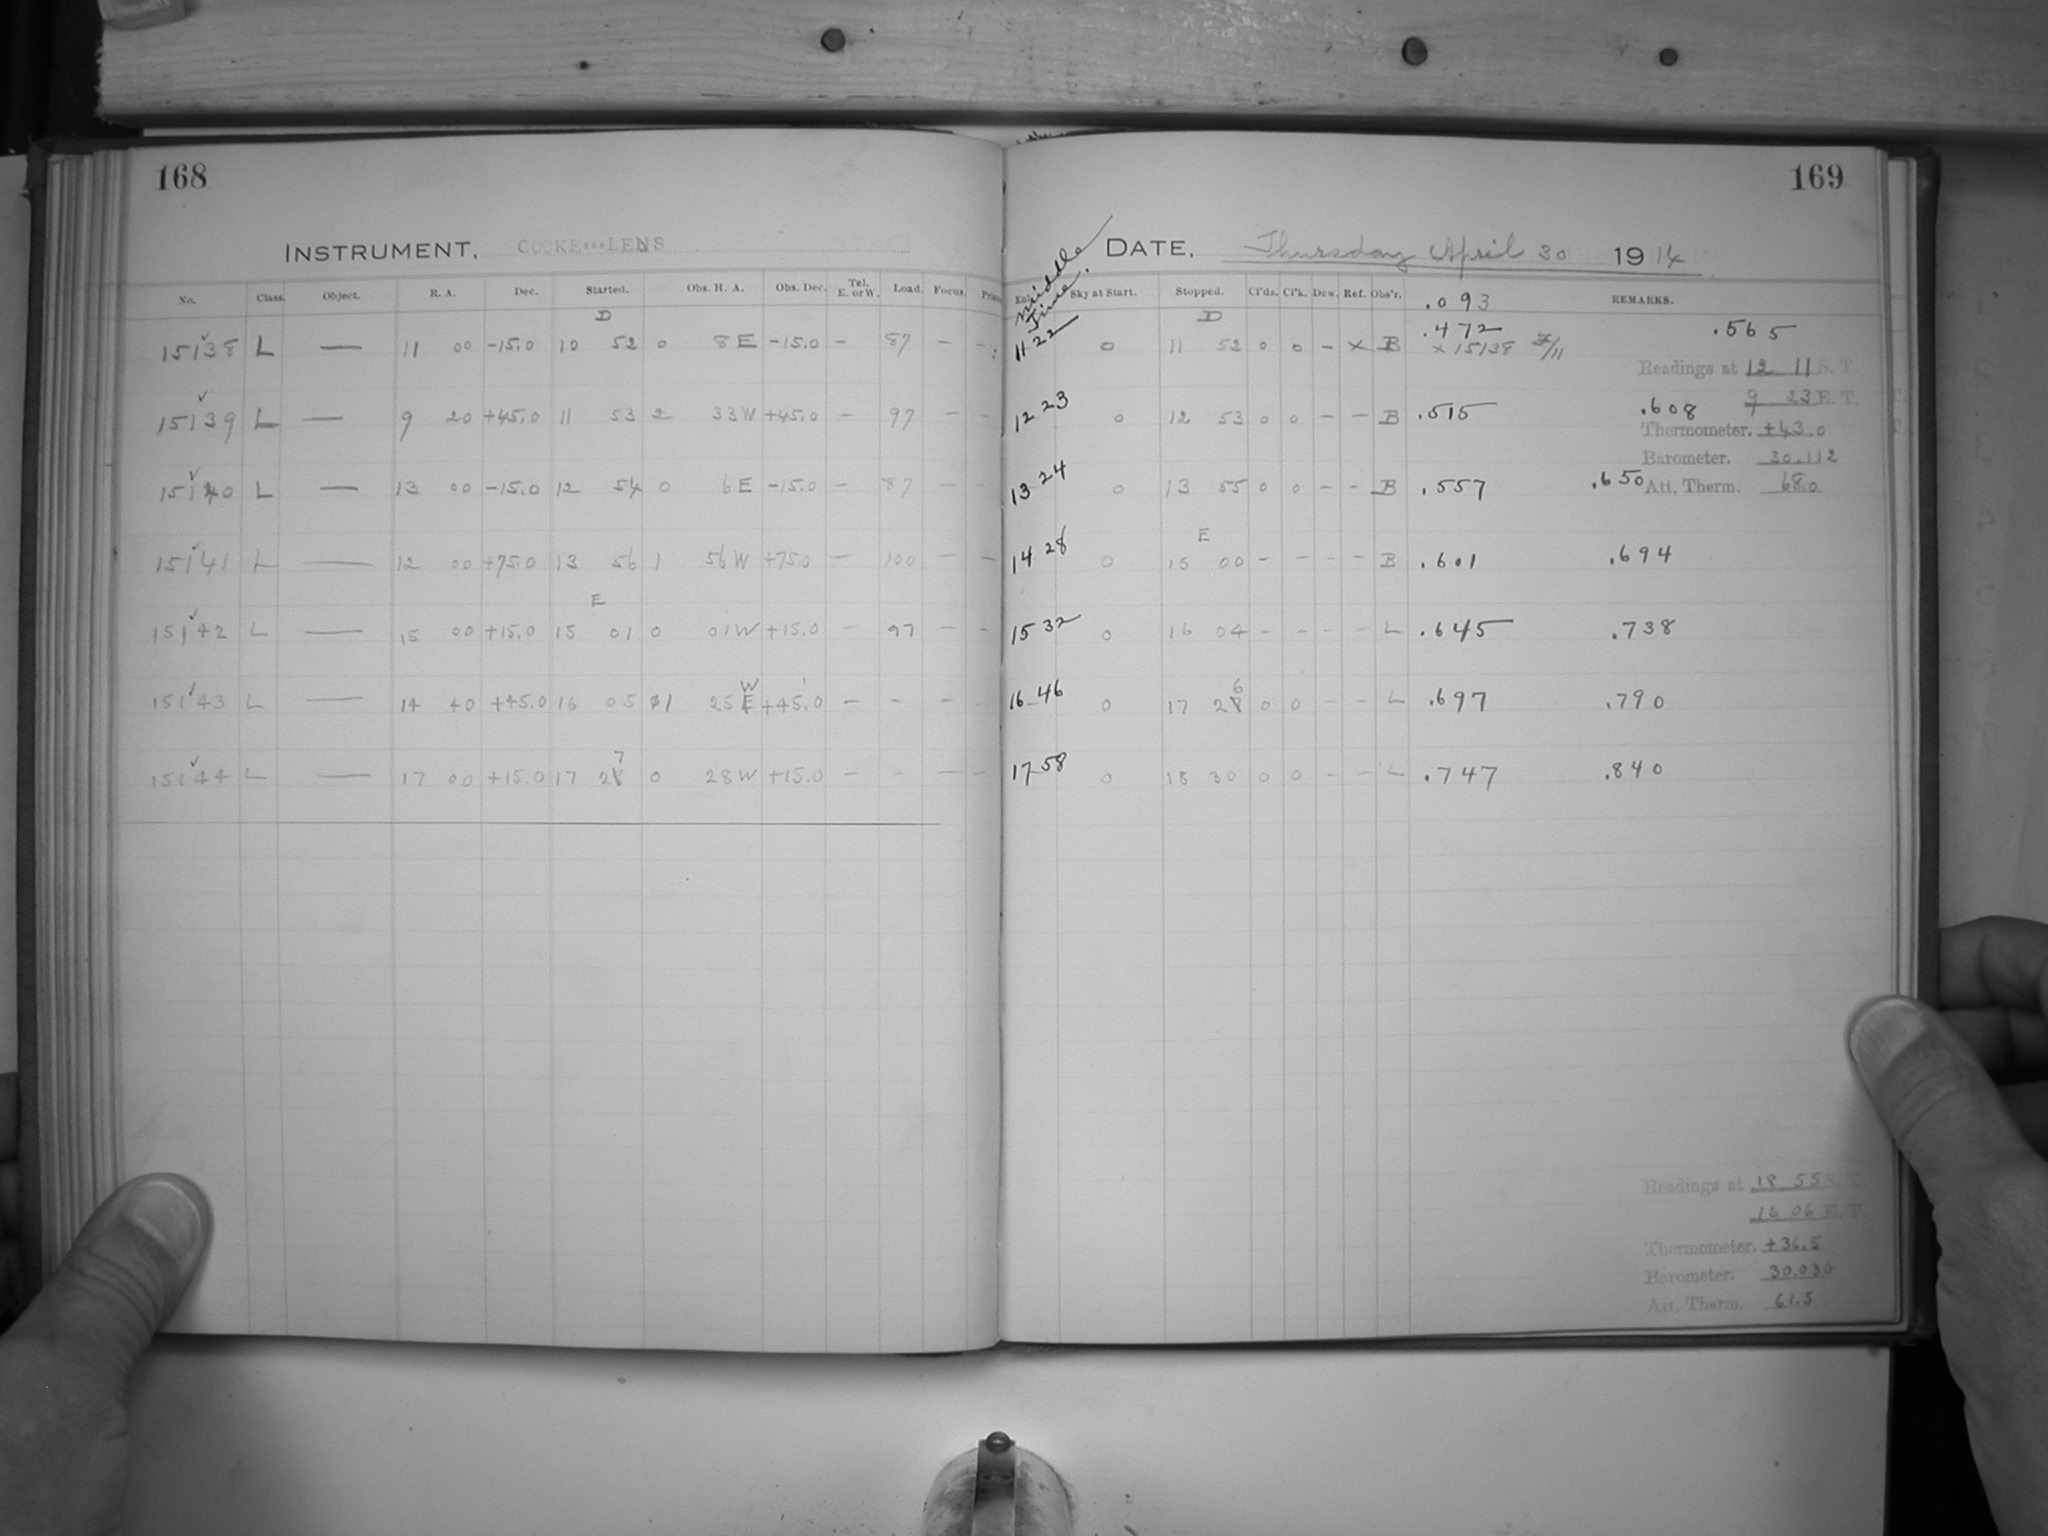 168
INSTRUMENT. COOKE LENS
No. Class. Object. R. A. Dec. Started. Obs. H. A. Obs. Dec. Tel. E. or W. Load. Focus.
D
15138 L — 11 00 -15.0 10 52 0 8 E -15.0 - 87 - -
15139 L — 9 20 +45.0 11 53 2 33 W +45.0 - 97 - -
15140 L — 13 00 -15.0 12 54 0 6 E -15.0 - 87 - -
15141 L — 12 00 +75.0 13 56 1 56 W +75.0 - 100 - -
E
15142 L — 15 00 +15.0 15 01 0 01 W +15.0 - 97 - -
W
15143 L — 14 40 +45.0 16 05 1 25 +45.0 - - -
7
15144 L — 17 00 +15.0 17 2 0 28 W +15.0 - - - -
169
DATE. Thursday April 30 1914
Middle Time.
Sky at Start. Stopped. Cl'ds. Cl'k. Dew. Ref. Obs'r. REMARKS.
.093
D
11 22 0 11 52 0 0 - x B .472 .565
x 15138
Readings at 12 11 S. T.
9 23 E. T.
12 23 0 12 53 0 0 - - B .515 .608
Thermometer. +43.0
Barometer. 30.112
13 24 0 13 55 0 0 - - B .557 .650
Att. Therm. 68.0
E
14 28 0 15 00 - - - - B .601 .694
15 32 0 16 04 - - - - L .645 .738
6
16 46 0 17 2 0 0 - - L .697 .790
17 58 0 18 30 0 0 - - L .747 .840
Readings at 18 55 S. T.
16 06 E. T.
Thermometer. +36.5
Barometer. 30.030
Att. Therm. 61.5